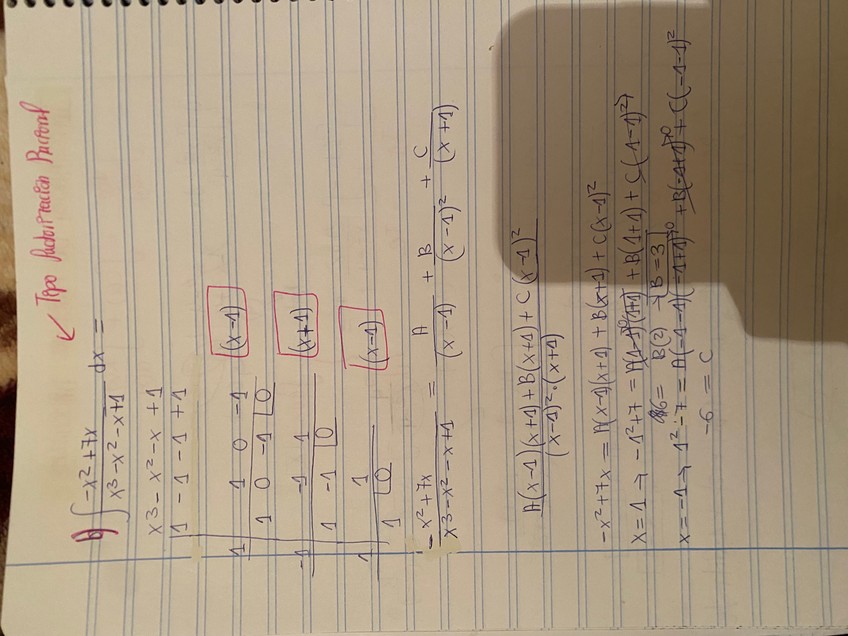 ↙ Tipo factorización Racional
b) ∫ -x²+7x / x³-x²-x+1 dx =
x³-x²-x+1
1 -1 -1 +1
1 | 1 0 -1 (x-1)
1 0 -1 |0
-1 | -1 1 (x+1)
1 -1 |0
1 | 1 (x-1)
1 |0
-x²+7x / x³-x²-x+1 = A / (x-1) + B / (x-1)² + C / (x+1)
A(x-1)(x+1)+B(x+1)+C(x-1)² / (x-1)²·(x+1)
-x²+7x = A(x-1)(x+1)+B(x+1)+C(x-1)²
x=1 → -1²+7 = A(1-1)(1+1)+B(1+1)+C(1-1)²
6 = B(2) → B=3
x=-1 → 1²-7 = A(-1-1)(-1+1)+B(-1+1)+C(-1-1)²
-6 = C